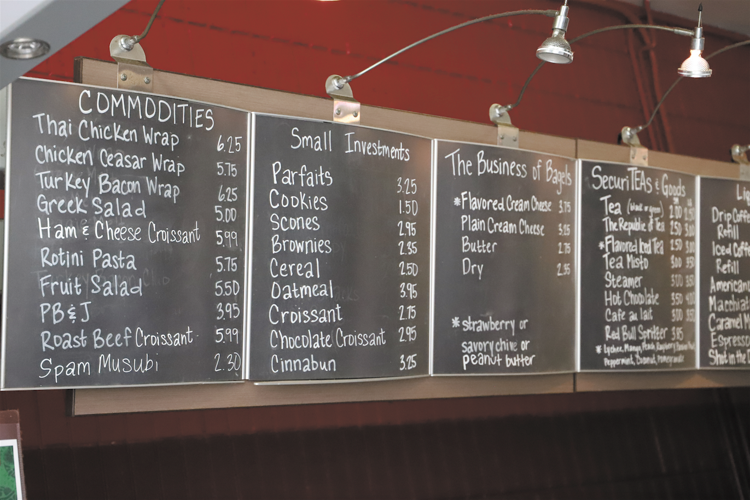 COMMODITIES
Thai Chicken Wrap 6.25
Chicken Ceasar Wrap 5.75
Turkey Bacon Wrap 6.25
Greek Salad 5.00
Ham & Cheese Croissant 5.99
Rotini Pasta 5.75
Fruit Salad 5.50
PB & J 3.95
Roast Beef Croissant 5.99
Spam Musubi 2.30
Small Investments
Parfaits 3.25
Cookies 1.50
Scones 2.95
Brownies 2.35
Cereal 2.50
Oatmeal 3.95
Croissant 2.75
Chocolate Croissant 2.95
Cinnabun 3.25
The Business of Bagels
*Flavored Cream Cheese 3.75
Plain Cream Cheese 3.25
Butter 2.75
Dry 2.35
*strawberry or
savory chive or
peanut butter
SecuriTEAs & Goods
Tea (black or green)
The Republic of Tea
*Flavored Iced Tea
Tea Misto
Steamer
Hot Chocolate
Cafe au lait
Red Bull Spritzer
*Lychee, Mango, Peach, Raspberry
Peppermint, Coconut,
Drip Coff
Refill
Iced Coff
Refill
American
Macchia
Caramel
Espresso
Shot in the